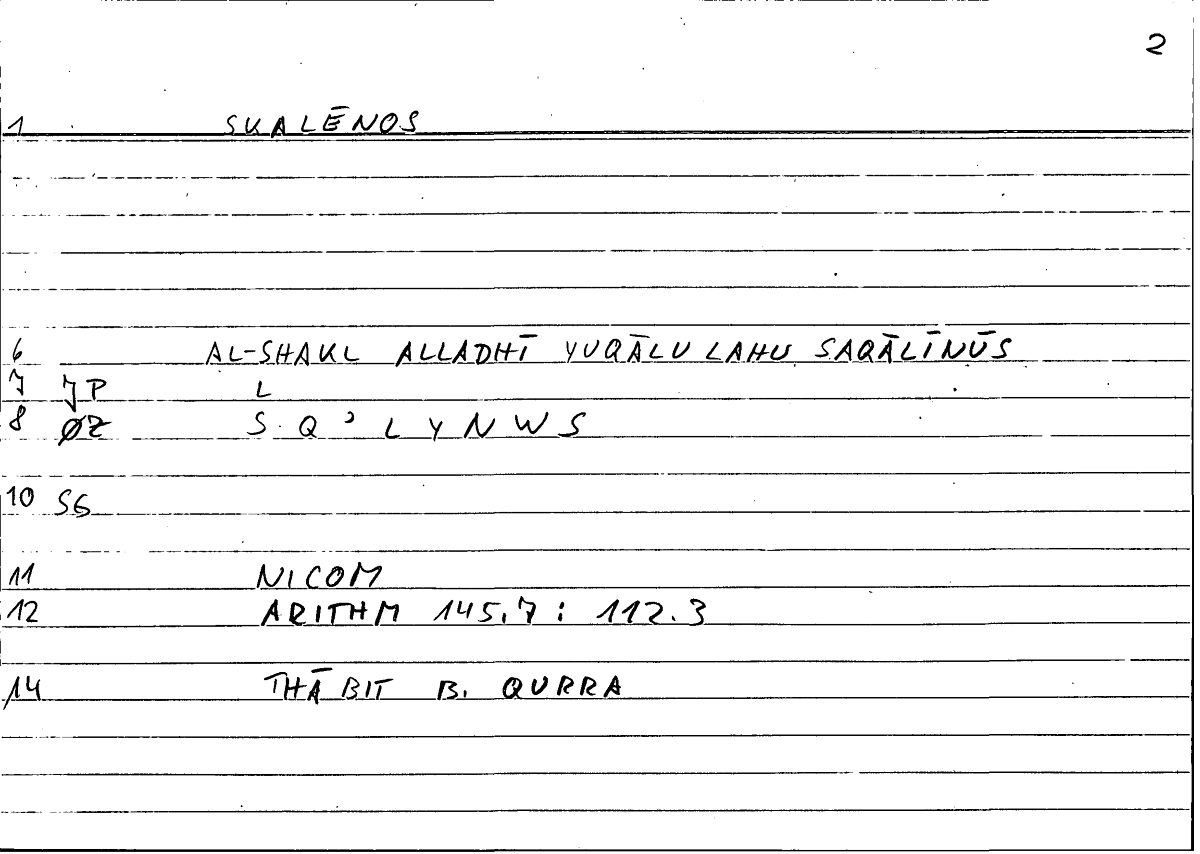 2
1 SKALĒNOS
6 AL-SHAKL ALLADHĪ YUQĀLU LAHU SAQĀLĪNŪS
7 JP L
8 ØZ S.Q ʾ L Y N W S
10 SG
11 NICOM
12 ARITHM 145.7 : 112.3
14 THĀBIT B. QURRA